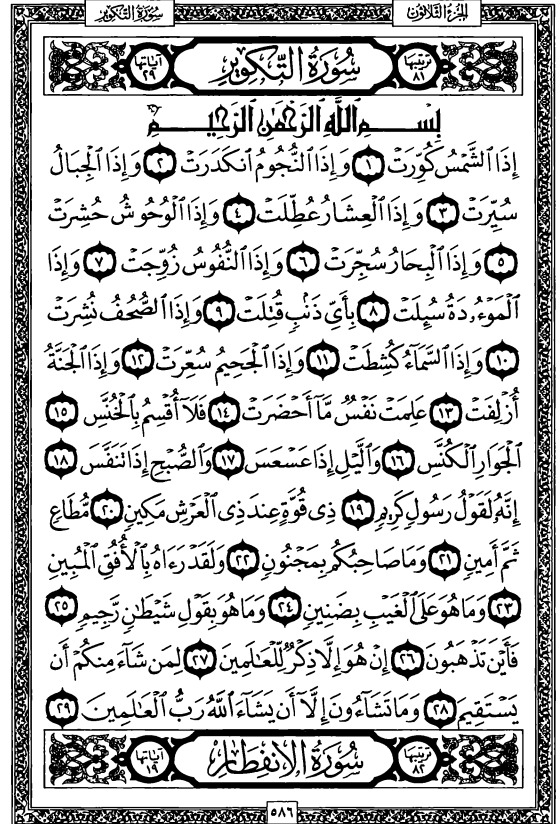 الجزء الثلاثون سورة التكوير
ترتيبها ٨١ سُورَةُ التَّكْوِيرِ آياتها ٢٩
بِسْمِ ٱللَّهِ ٱلرَّحْمَٰنِ ٱلرَّحِيمِ
إِذَا ٱلشَّمْسُ كُوِّرَتْ ١ وَإِذَا ٱلنُّجُومُ ٱنكَدَرَتْ ٢ وَإِذَا ٱلْجِبَالُ
سُيِّرَتْ ٣ وَإِذَا ٱلْعِشَارُ عُطِّلَتْ ٤ وَإِذَا ٱلْوُحُوشُ حُشِرَتْ
٥ وَإِذَا ٱلْبِحَارُ سُجِّرَتْ ٦ وَإِذَا ٱلنُّفُوسُ زُوِّجَتْ ٧ وَإِذَا
ٱلْمَوْءُۥدَةُ سُئِلَتْ ٨ بِأَىِّ ذَنۢبٍ قُتِلَتْ ٩ وَإِذَا ٱلصُّحُفُ نُشِرَتْ
١٠ وَإِذَا ٱلسَّمَآءُ كُشِطَتْ ١١ وَإِذَا ٱلْجَحِيمُ سُعِّرَتْ ١٢ وَإِذَا ٱلْجَنَّةُ
أُزْلِفَتْ ١٣ عَلِمَتْ نَفْسٌ مَّآ أَحْضَرَتْ ١٤ فَلَآ أُقْسِمُ بِٱلْخُنَّسِ ١٥
ٱلْجَوَارِ ٱلْكُنَّسِ ١٦ وَٱلَّيْلِ إِذَا عَسْعَسَ ١٧ وَٱلصُّبْحِ إِذَا تَنَفَّسَ ١٨
إِنَّهُۥ لَقَوْلُ رَسُولٍ كَرِيمٍ ١٩ ذِى قُوَّةٍ عِندَ ذِى ٱلْعَرْشِ مَكِينٍ ٢٠ مُّطَاعٍ
ثَمَّ أَمِينٍ ٢١ وَمَا صَاحِبُكُم بِمَجْنُونٍ ٢٢ وَلَقَدْ رَءَاهُ بِٱلْأُفُقِ ٱلْمُبِينِ
٢٣ وَمَا هُوَ عَلَى ٱلْغَيْبِ بِضَنِينٍ ٢٤ وَمَا هُوَ بِقَوْلِ شَيْطَٰنٍ رَّجِيمٍ ٢٥
فَأَيْنَ تَذْهَبُونَ ٢٦ إِنْ هُوَ إِلَّا ذِكْرٌ لِّلْعَٰلَمِينَ ٢٧ لِمَن شَآءَ مِنكُمْ أَن
يَسْتَقِيمَ ٢٨ وَمَا تَشَآءُونَ إِلَّآ أَن يَشَآءَ ٱللَّهُ رَبُّ ٱلْعَٰلَمِينَ ٢٩
ترتيبها ٨٢ سُورَةُ الانفِطَارِ آياتها ١٩
٥٨٦